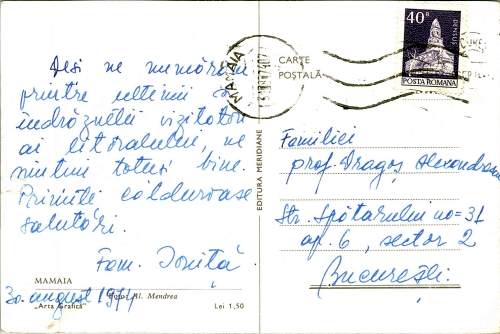 Deși ne numărăm
printre ultimii și
îndrăzneții vizitatori
ai litoralului, ne
simțim totuși bine.
Primiți călduroase
salutări.
Fam. Ioniță
30 august 1974
MAMAIA
Foto: Al. Mendrea
„Arta Grafică”
Lei 1,50
EDITURA MERIDIANE
CARTE
POȘTALĂ
MAMAIA
40 B
DENSUȘ
POSTA ROMANA
Familiei
prof. Dragoș Alexandru
Str. Spătarului no = 31
ap. 6, sector 2
București.